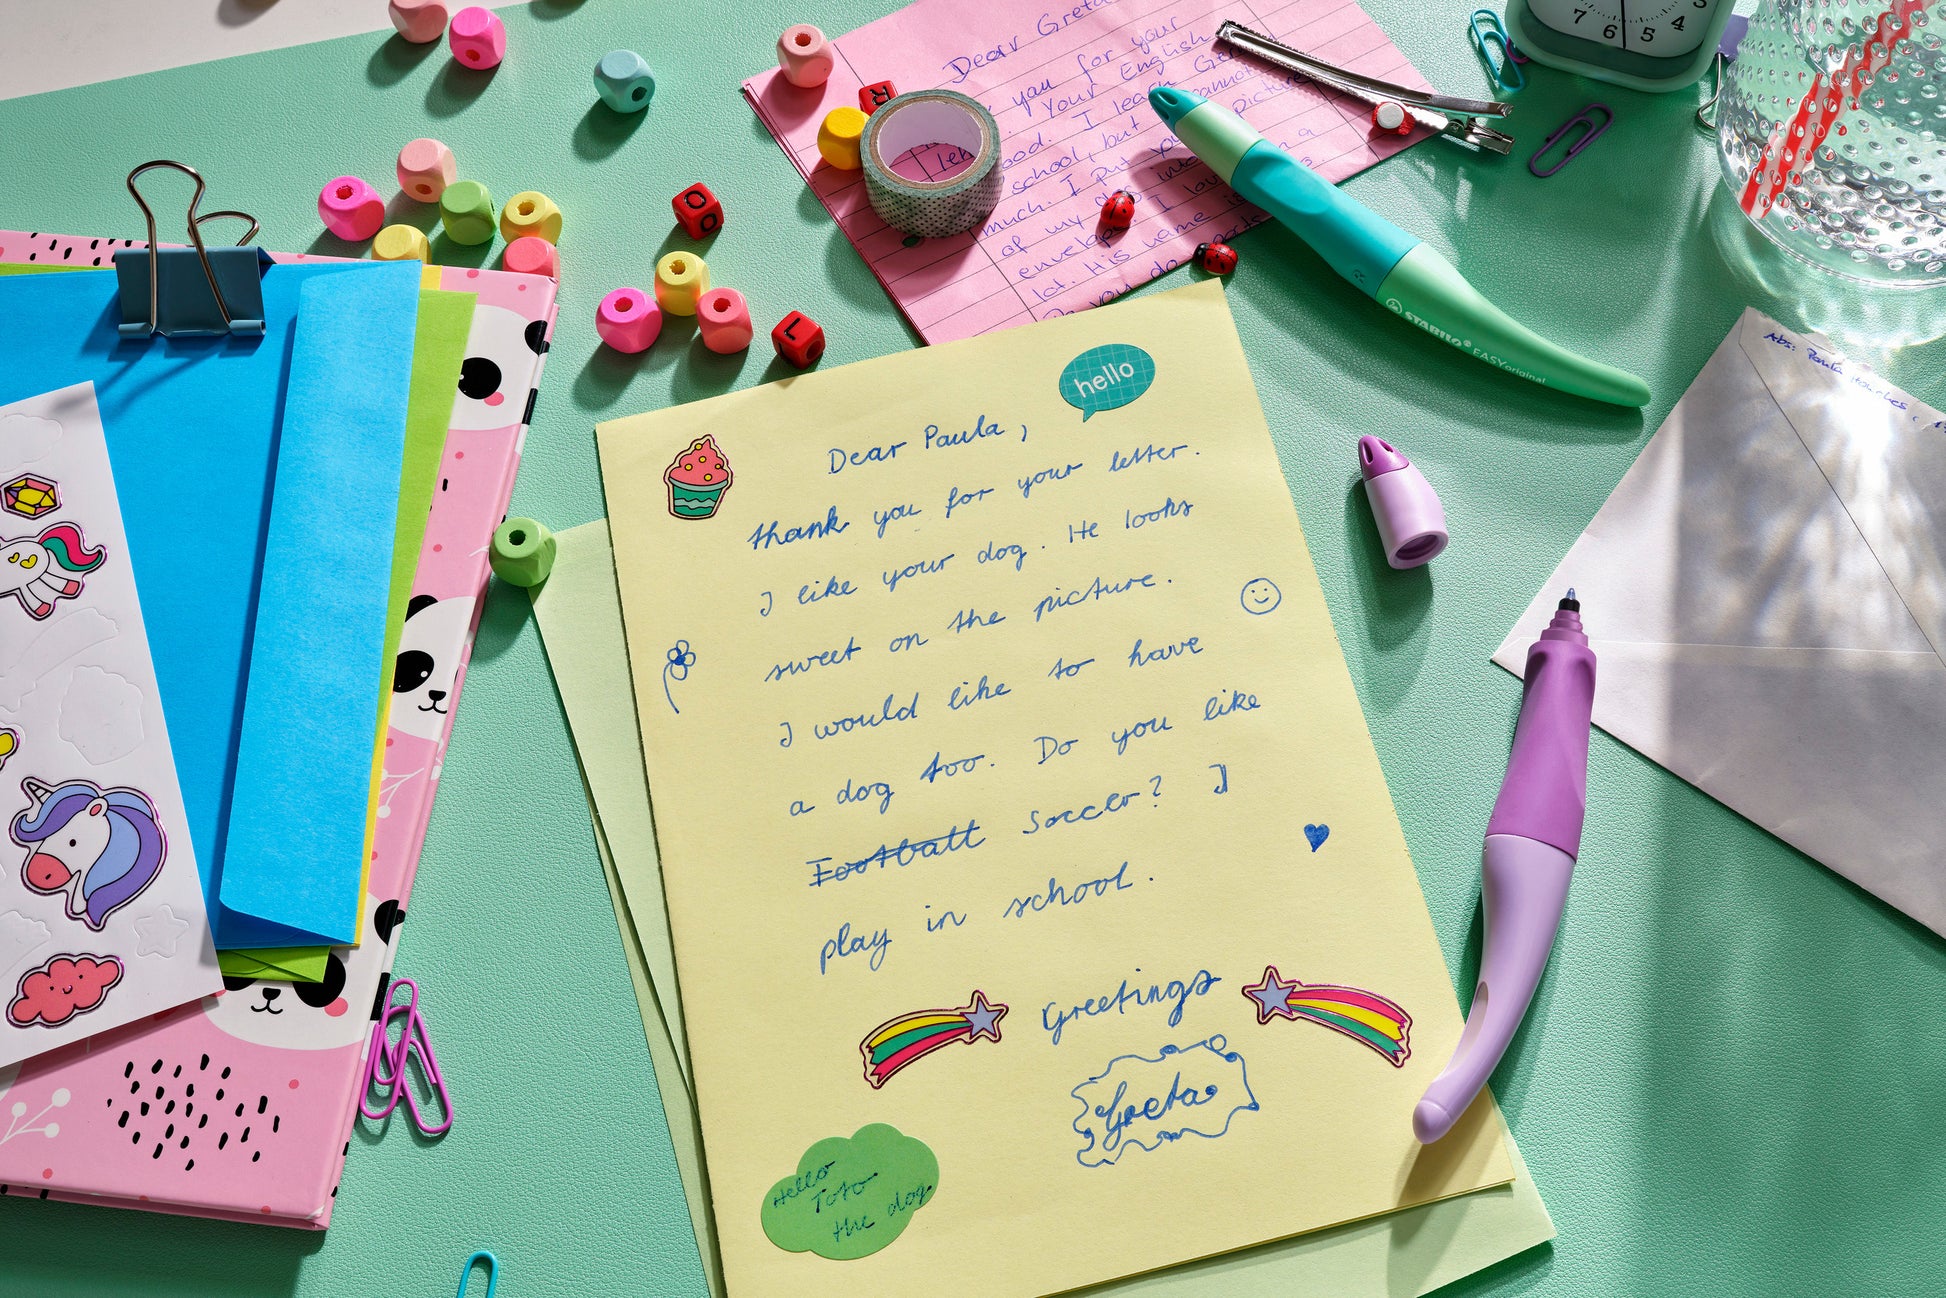 Dear Greta
you for your
Your English
good. I learn
school, but cannot
much. I put picture
of my dog into
envelope. I
lot. His name is
you do
R
O
L
7 6 5 4
STABILO® EASYoriginal
Abs: Paula
hello
Dear Paula,
thank you for your letter.
I like your dog. He looks
sweet on the picture.
I would like to have
a dog too. Do you like
Football Soccer? I
play in school.
Greetings
Greta
Hello
Toto
the dog